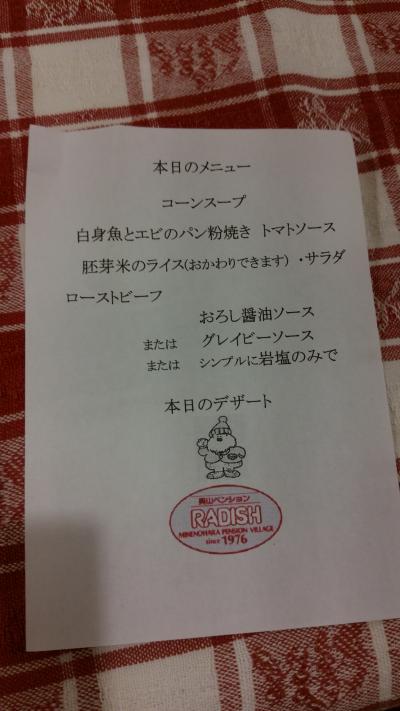 本日のメニュー
コーンスープ
白身魚とエビのパン粉焼き トマトソース
胚芽米のライス(おかわりできます) ・サラダ
ローストビーフ
おろし醤油ソース
または グレイビーソース
または シンプルに岩塩のみで
本日のデザート
ペンション
RADISH
MINENOHARA PENSION VILLAGE
since 1976